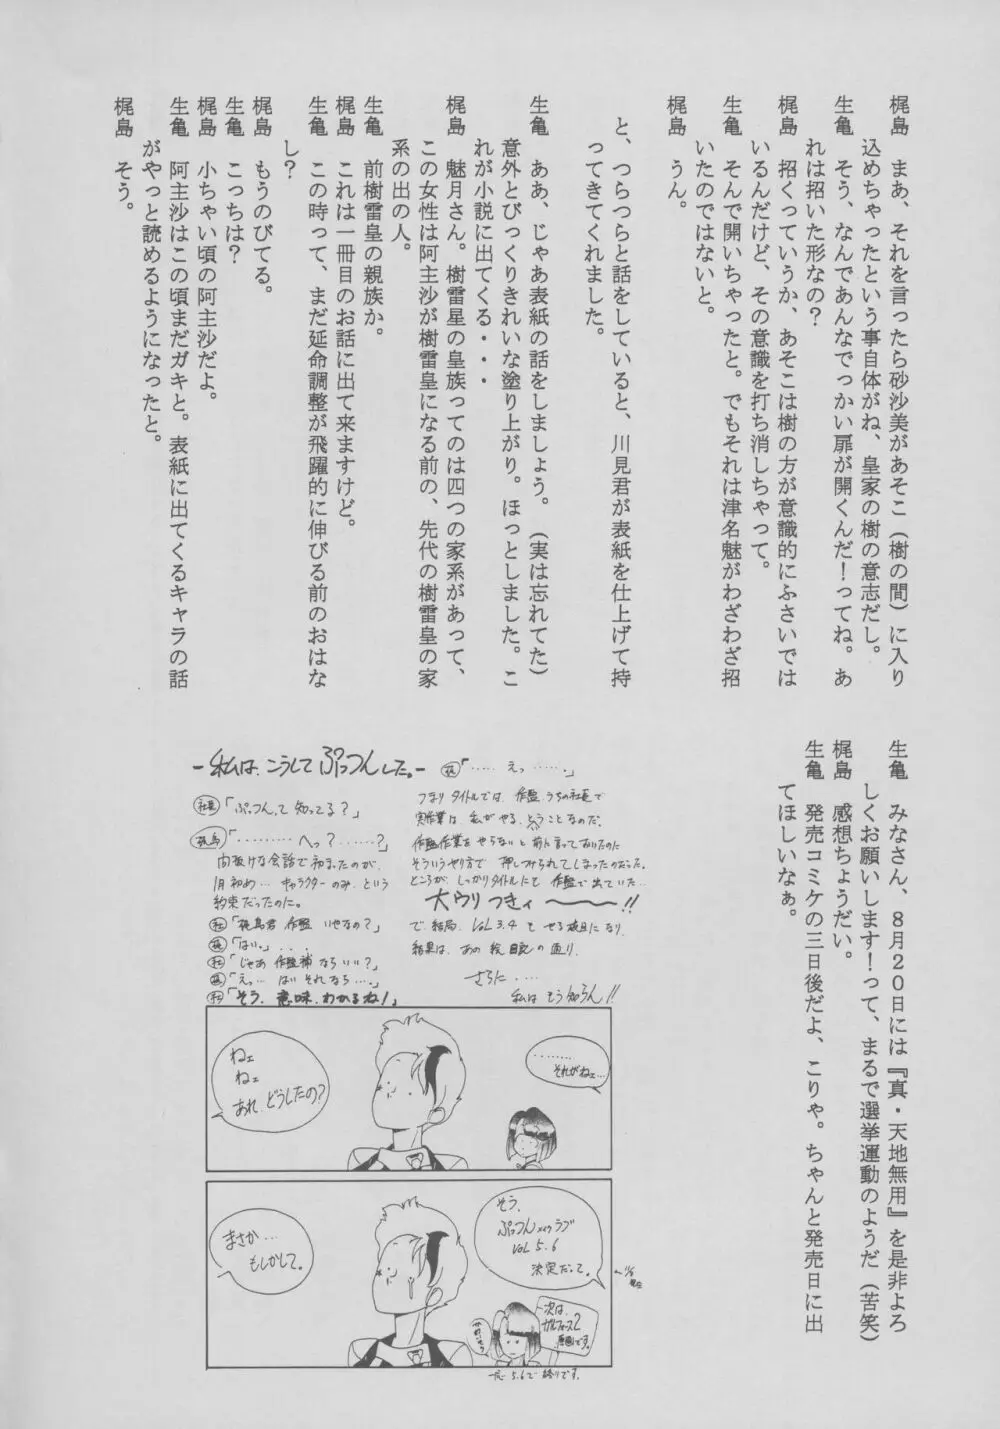 梶島　まあ、それを言ったら砂沙美があそこ（樹の間）に入り
込めちゃったという事自体がね、皇家の樹の意志だし。
生亀　そう、なんであんなでっかい扉が開くんだ！ってね。あ
れは招いた形なの？
梶島　招くっていうか、あそこは樹の方が意識的にふさいでは
いるんだけど、その意識を打ち消しちゃって。
生亀　そんで開いちゃったと。でもそれは津名魅がわざわざ招
いたのではないと。
梶島　うん。
と、つらつらと話をしていると、川見君が表紙を仕上げて持
ってきてくれました。
生亀　ああ、じゃあ表紙の話をしましょう。（実は忘れてた）
意外とびっくりきれいな塗り上がり。ほっとしました。こ
れが小説に出てくる・・・
梶島　魅月さん。樹雷星の皇族ってのは四つの家系があって、
この女性は阿主沙が樹雷皇になる前の、先代の樹雷皇の家
系の出の人。
生亀　前樹雷皇の親族か。
梶島　これは一冊目のお話に出て来ますけど。
生亀　この時って、まだ延命調整が飛躍的に伸びる前のおはな
し？
梶島　もうのびてる。
生亀　こっちは？
梶島　小ちゃい頃の阿主沙だよ。
生亀　阿主沙はこの頃まだガキと。表紙に出てくるキャラの話
がやっと読めるようになったと。
梶島　そう。
生亀　みなさん、８月２０日には『真・天地無用』を是非よろ
しくお願いします！って、まるで選挙運動のようだ（苦笑）
梶島　感想ちょうだい。
生亀　発売コミケの三日後だよ、こりゃ。ちゃんと発売日に出
てほしいなぁ。
-私は、こうしてぷっつんした。-
社長「ぷっつんって知ってる？」
梶島「‥‥‥‥へっ？‥‥‥？」
間抜けな会話で初まったのが、
1月初め… キャラクターのみ、という
約束だったのに。
社「梶島君 作監 いやなの？」
梶「はい。」．．．
社「じゃあ 作監補 ならいい？」
梶「えっ… はい それなら‥‥」
社「そう、意味、わかるね！」
梶「‥‥‥えっ‥‥‥。」
つまり タイトルでは、作監、うちの社長で
実作業は 私がやる、とうことなのだ、
作監作業を やらないと 前に言っておいたのに
そういうやり方で 押しつけられてしまったのだった。
ところが、しっかりタイトルにも 作監で出ていた…
大ウソつきィ〜〜〜!!
で、結局、VOL 3.4 と せる枚目になり、
結果は、あの 絵 の 通り、
さらに‥‥
私は もう知らん!!
ねェ
ねェ
あれ、どうしたの？
‥‥‥‥
それがねェ…
まさか…
もしかして。
そう、
ぷっつんメイクラブ
VOL 5.6
決定だって。
次は、
ガルフォース2
原画です。
一応 5.6で 終りです。